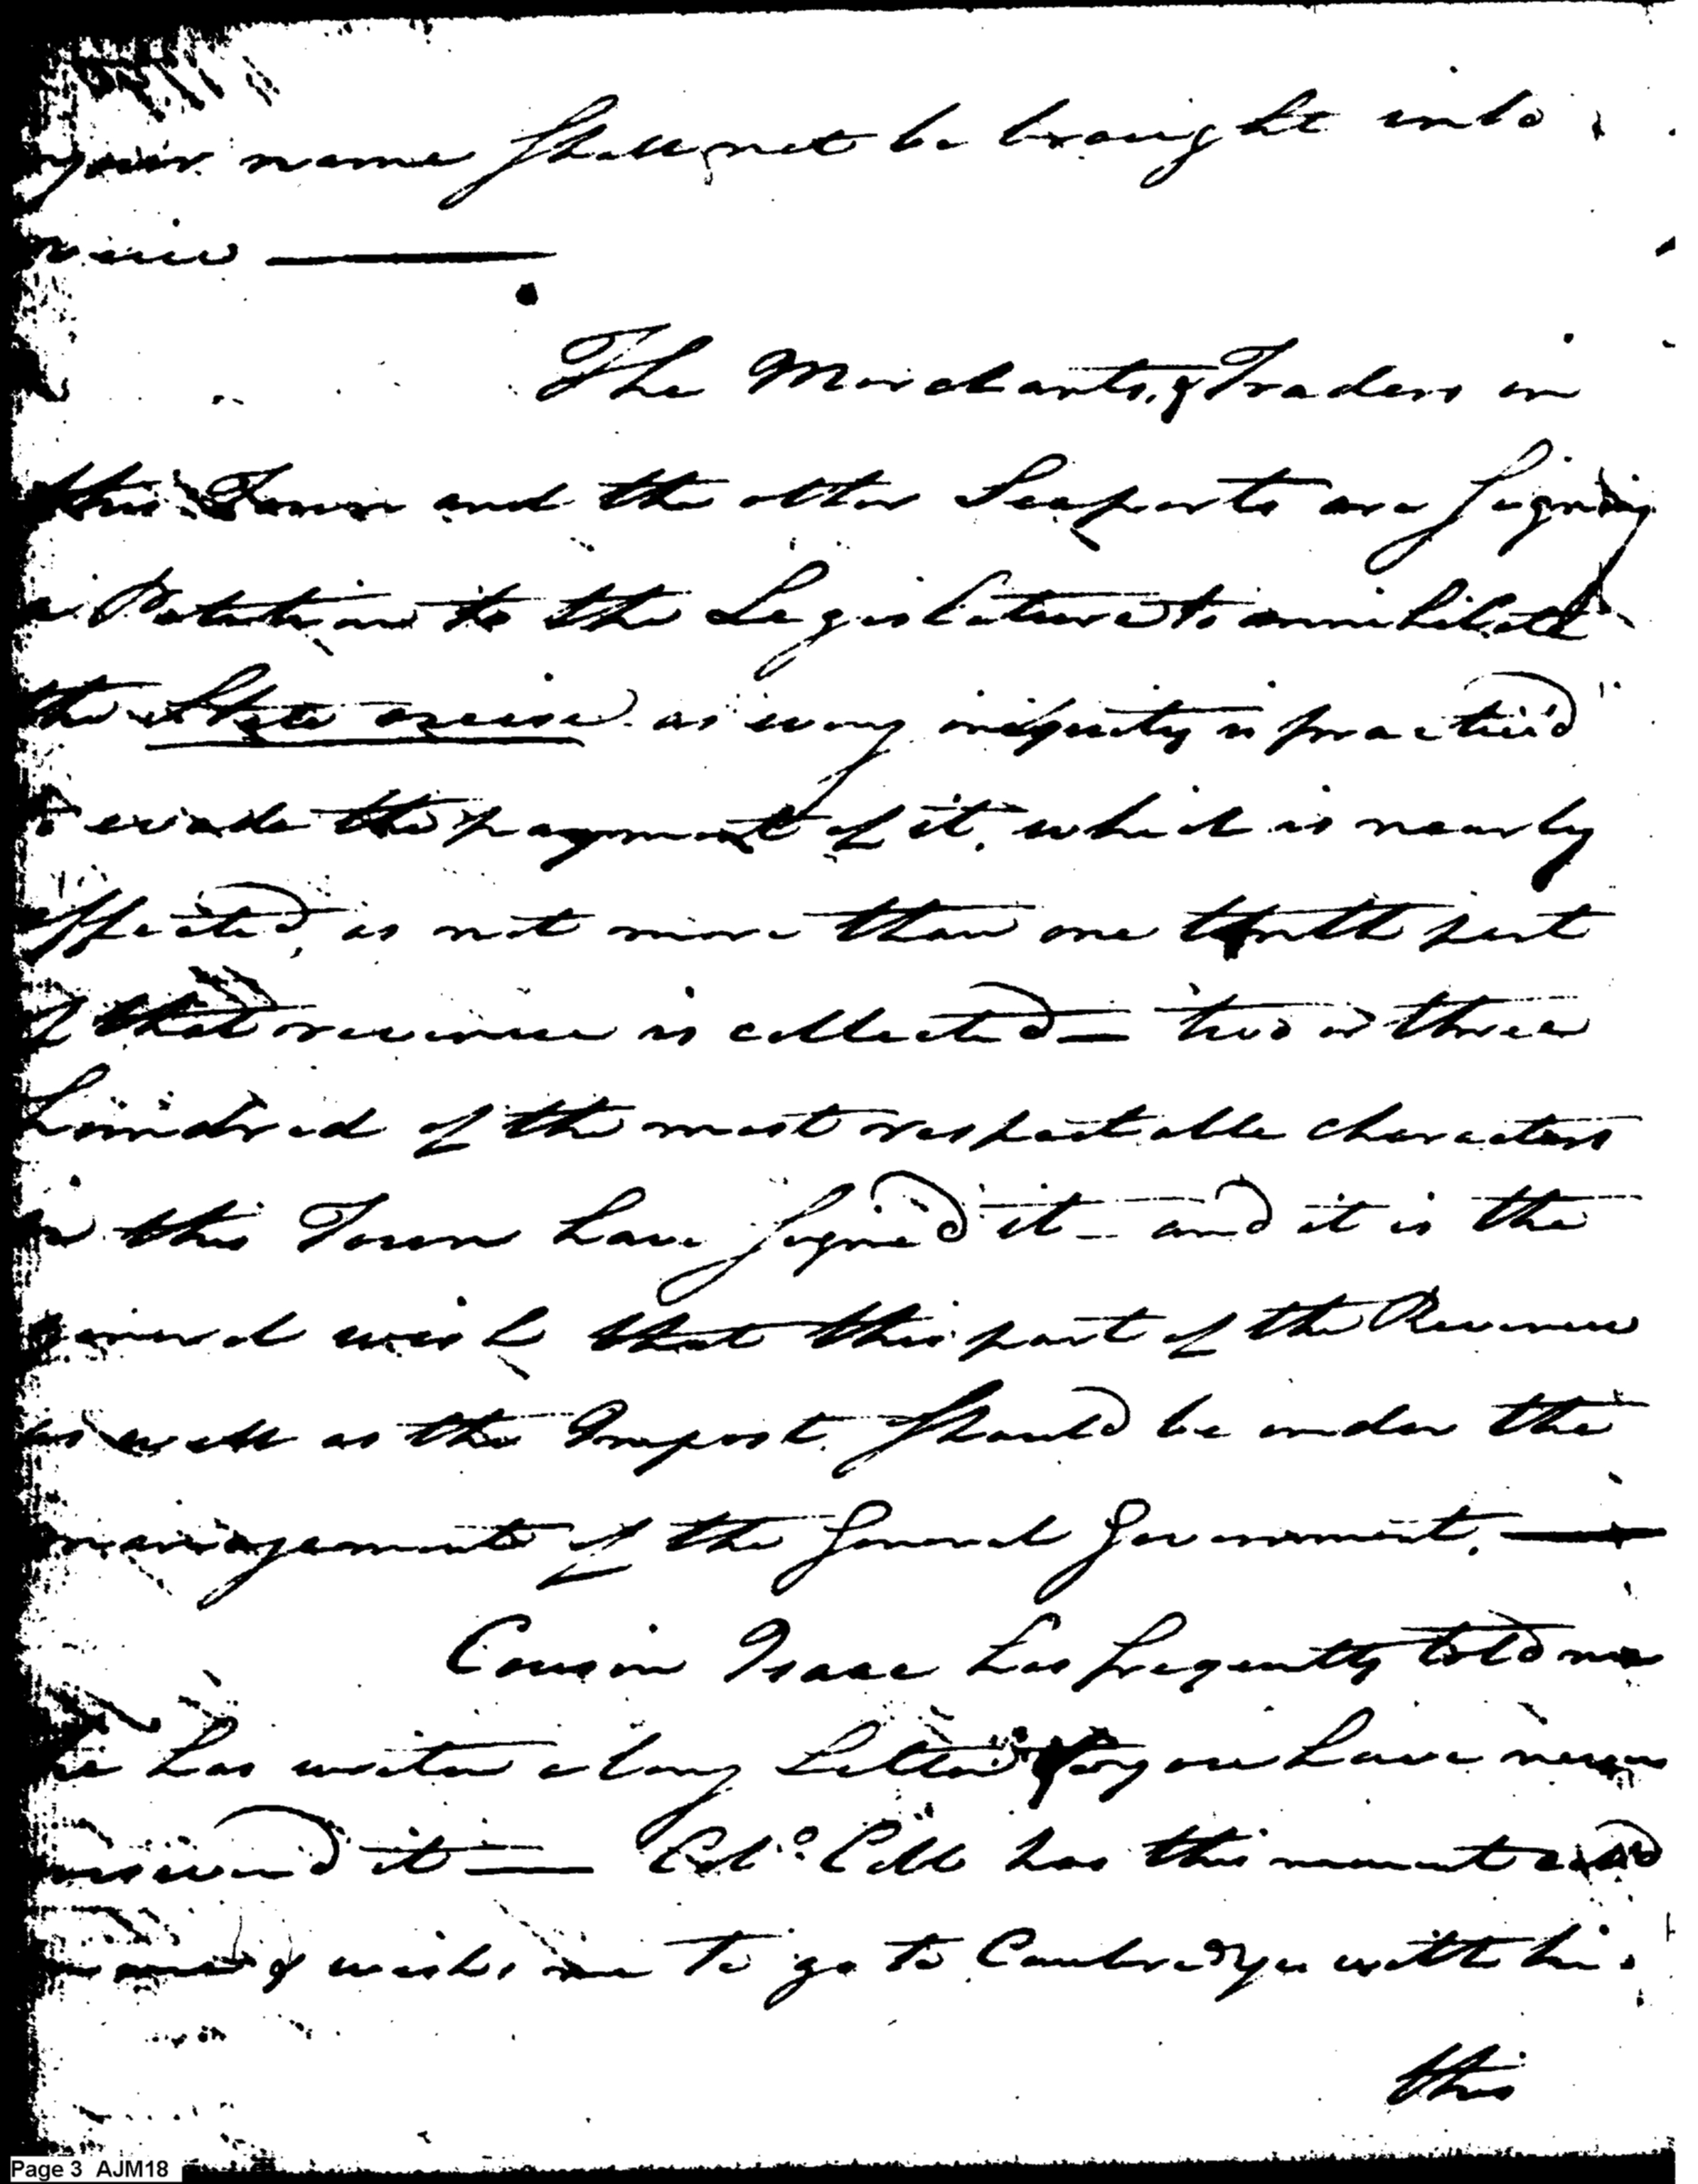 your name shall not be brought into
view ———
The Merchants, & Traders in
this Town and the other Seaports are signing
a Petition to the Legislature to annihilate
the State excise as every iniquity is practic'd
to evade the payment of it, which is nearly
effected, as not more than one tenth part
of that revenue is collected — two or three
hundred of the most respectable characters
in this Town have signed it — and it is the
general wish that this part of the Revenue
as well as the Impost, should be under the
management of the General Government. —
Cousin Isaac has frequently told me
he has writen a long Letter to you have never
answerd it — Colo. Cobb has this moment
& wishes me to go to Cambridge with
this
Page 3 AJM18